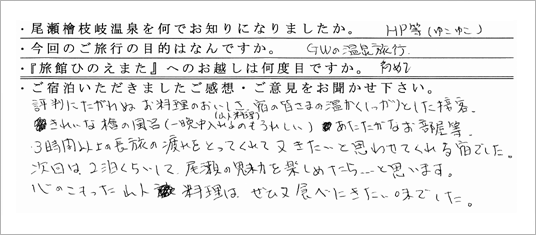 ・尾瀬檜枝岐温泉を何でお知りになりましたか。 HP等(ゆこゆこ)
・今回のご旅行の目的はなんですか。 GWの温泉旅行
・『旅館ひのえまた』へのお越しは何度目ですか。 初めて
・ご宿泊いただきましたご感想・ご意見をお聞かせ下さい。
評判にたがわぬお料理のおいしさ、宿の皆さまの温かくしっかりとした接客、
(山人料理)
きれいな檜の風呂(一晩中入れるのもうれしい) あたたかなお部屋等、
3時間以上の長旅の疲れをとってくれて又きたいと思わせてくれる宿でした。
次回は2泊くらいして、尾瀬の魅力を楽しめたら…と思います。
心のこもった山人料理は、ぜひ又食べにきたい味でした。